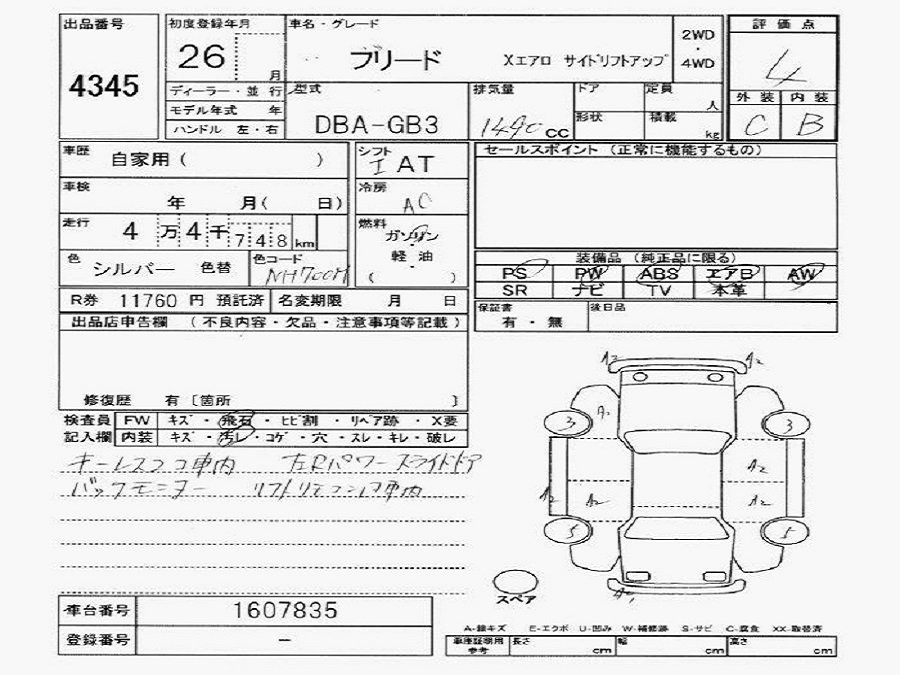 出品番号
4345
初度登録年月
26
月
車名・グレード
フリード Xエアロ サイドリフトアップ
2WD
・
4WD
評価点
4
外装 内装
C B
ディーラー・並行
モデル年式 年
ハンドル 左・右
型式
DBA-GB3
排気量
1490cc
ドア
形状
定員
人
積載
kg
車歴
自家用( )
シフト
I AT
セールスポイント (正常に機能するもの)
車検
年 月( 日)
冷房
AC
走行
4万4千748km
燃料
ガソリン
・
軽油
( )
色
シルバー 色替
色コード
NH700M
装備品 (純正品に限る)
PS PW ABS エアB AW
SR ナビ TV 本革
R券 11760円 預託済
名変期限 月 日
保証書
有・無
後日品
出品店申告欄 (不良内容・欠品・注意事項等記載)
修復歴 有〔箇所 〕
検査員
記入欄
FW キズ・飛石・ヒビ割・リペア跡・X要
内装 キズ・汚レ・コゲ・穴・スレ・キレ・破レ
キーレス2コ車内 左Rパワースライドドア
バックモニター リフトリモコン1コ車内
A2 A2
3 A1 3
A2
A2 A2 A2
5 5
A1
スペア
車台番号 1607835
登録番号 −
A-線キズ E-エクボ U-凹み W-補修跡 S-サビ C-腐食 XX-取替済
車庫証明用
参考
長さ cm
幅 cm
高さ cm